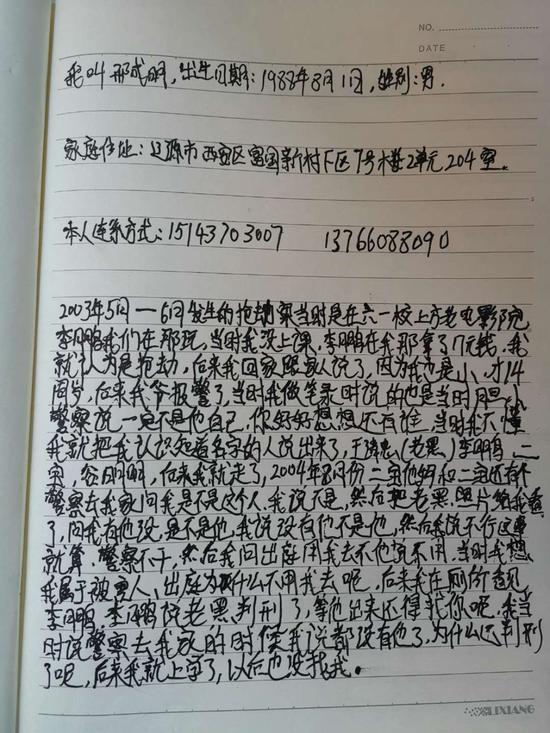 NO.
DATE
我叫邢成明,出生日期:1988年8月1日,性别:男.
家庭住址:辽源市西安区富国新村F区7号楼2单元204室.
本人连系方式:15143703007 13766088090
2003年5月—6月发生的抢劫案当时是在六一校上方老电影院
李朋鸣我们在那玩,当时我没上课.李朋鸣在我那拿了7元钱,我
就认为是抢劫,后来我回家跟家人说了,因为我也是小,才14
周岁,后来我爷报警了,当时我做笔录时说的也是当时胆小
警察说一定不是他自己,你好好想想还有谁,当时我不懂
我就把我认识知道名字的人说出来了,王洪忠(老黑)李朋鸣,二
宝,明明,后来我就走了,2004年8月份二宝他妈和二宝还有个
警察去我家问我是不是这个人.我说不是,然后把老黑照片给我看
了,问我有他没,是不是他,我说没有他不是他,然后我说不行这事
就算,警察不干,然后我问出庭用我去不他说不用,当时我想
我属于被害人,出庭为什么不用我去呢,后来我在厕所看见
李朋鸣,李朋鸣说老黑判刑了,等他出来还得找你呢,我当
时说警察去我家的时候我说都没有他了,为什么还判刑
了呢,后来我就上学了,以后也没找我.
LIXIANG